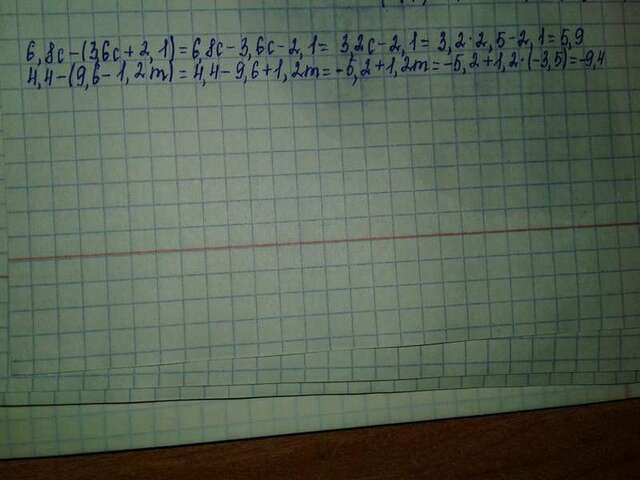 6,8c-(3,6c+2,1)=6,8c-3,6c-2,1=3,2c-2,1=3,2·2,5-2,1=5,9
4,4-(9,6-1,2m)=4,4-9,6+1,2m=-5,2+1,2m=-5,2+1,2·(-3,5)=-9,4